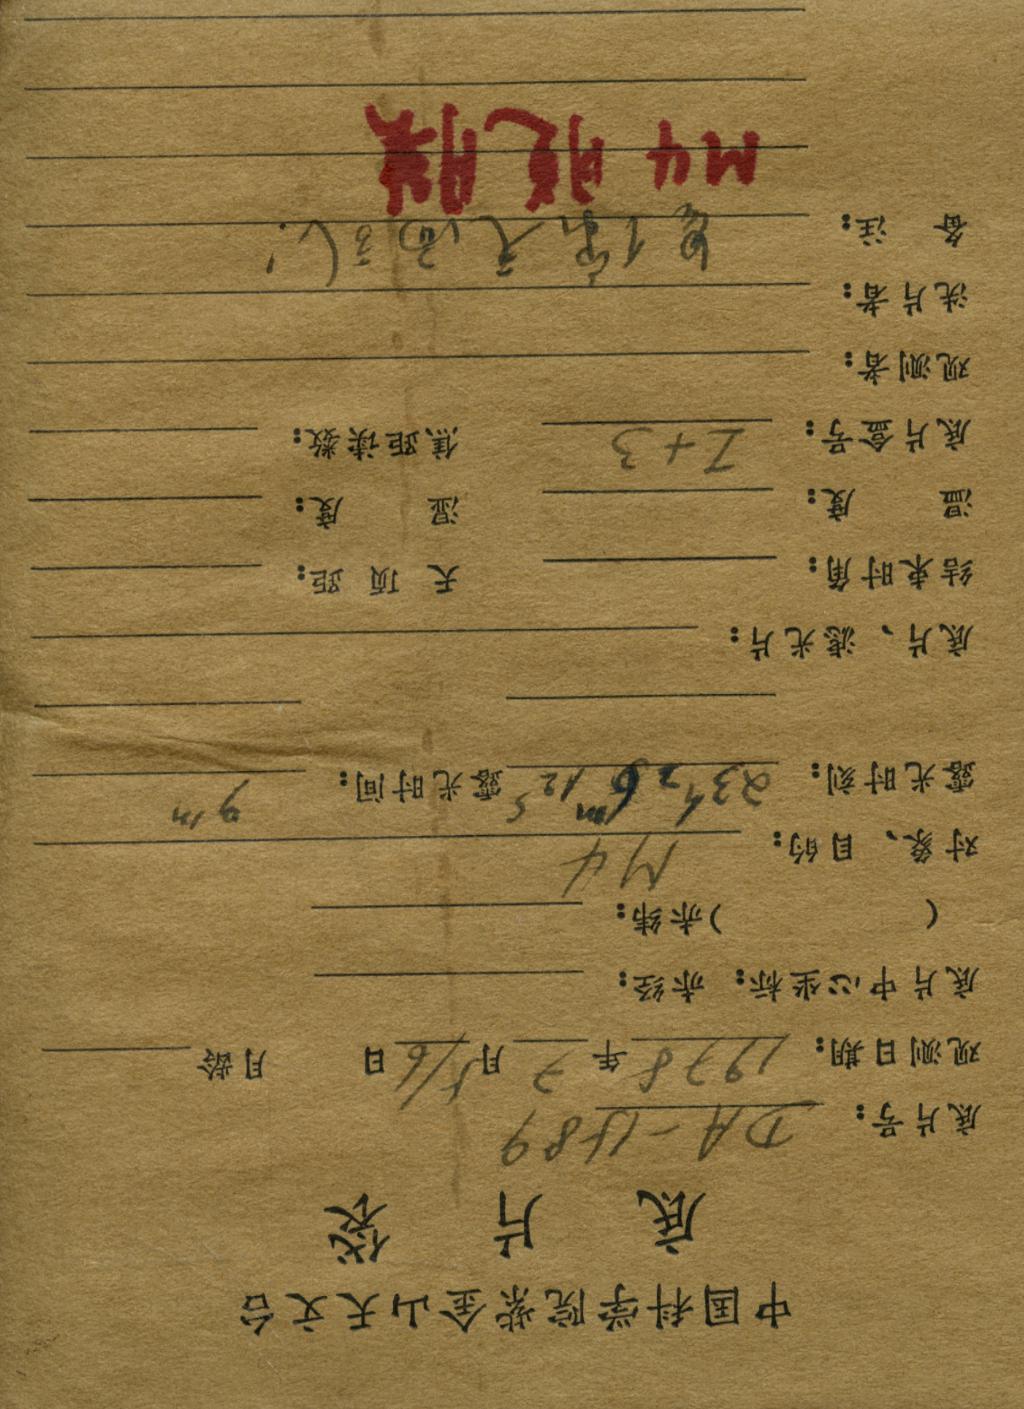 中国科学院紫金山天文台
底片袋
底片号: DA-U89
观测日期: 1978年7月5/6日 月龄
底片中心坐标: 赤经:
( )赤纬:
对象、目的: M4
露光时刻: 23h26m12s 露光时间: 9m
底片、滤光片:
结束时角: 天顶距:
温度: 湿度:
底片盒号: I+3 焦距读数:
观测者:
洗片者:
备注:
M4 脱膜